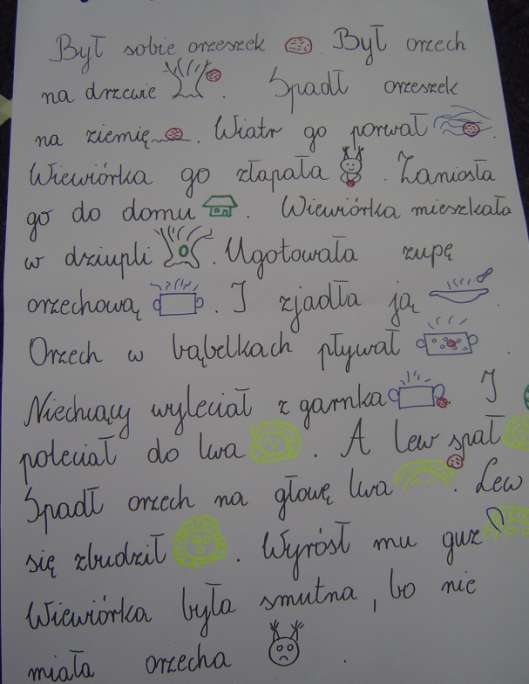 Był sobie orzeszek . Był orzech
na drzewie . Spadł orzeszek
na ziemię . Wiatr go porwał .
Wiewiórka go złapała . Zaniosła
go do domu . Wiewiórka mieszkała
w dziupli . Ugotowała zupę
orzechową . I zjadła ją .
Orzech w bąbelkach pływał .
Niechcący wyleciał z garnka . I
poleciał do lwa . A lew spał
Spadł orzech na głowę lwa . Lew
się zbudził . Wyrósł mu guz
Wiewiórka była smutna, bo nie
miała orzecha .